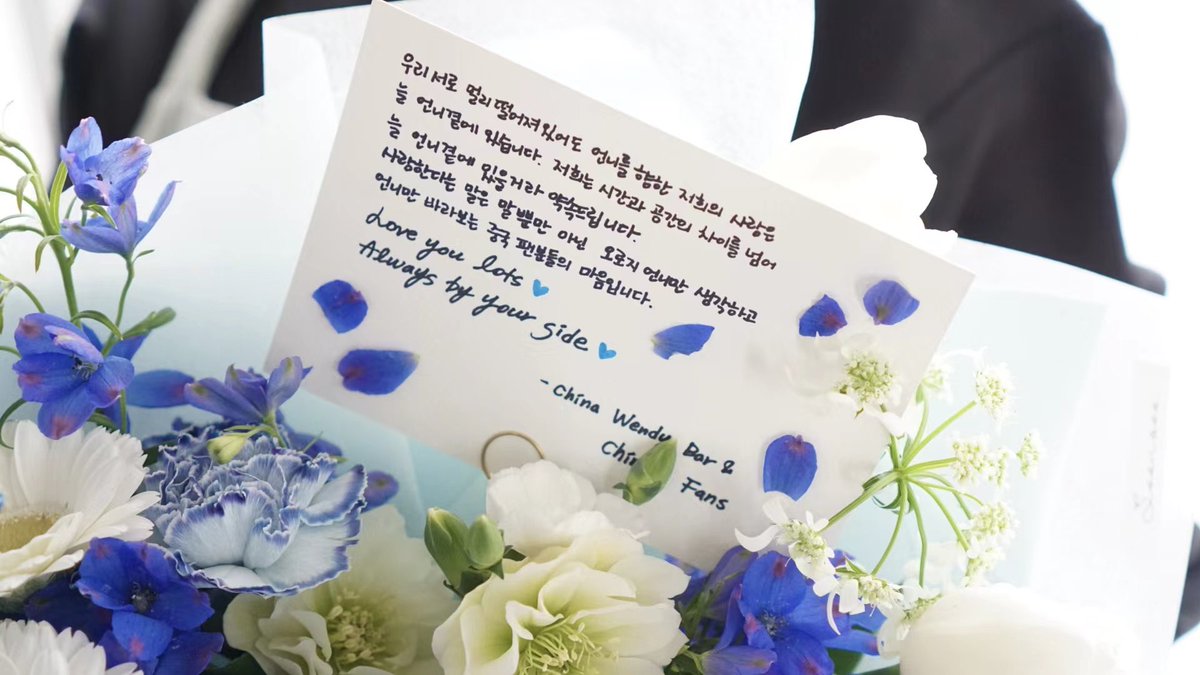 우리 서로 멀리 떨어져 있어도 언니를 향한 저희의 사랑은
늘 언니곁에 있습니다. 저희는 시간과 공간의 차이를 넘어
늘 언니곁에 있을거라 약속드립니다.
사랑한다는 말은 말 뿐만 아닌 오로지 언니만 생각하고
언니만 바라보는 중국 팬분들의 마음입니다.
Love you lots
Always by your side
- China Wendy Bar &
Fans